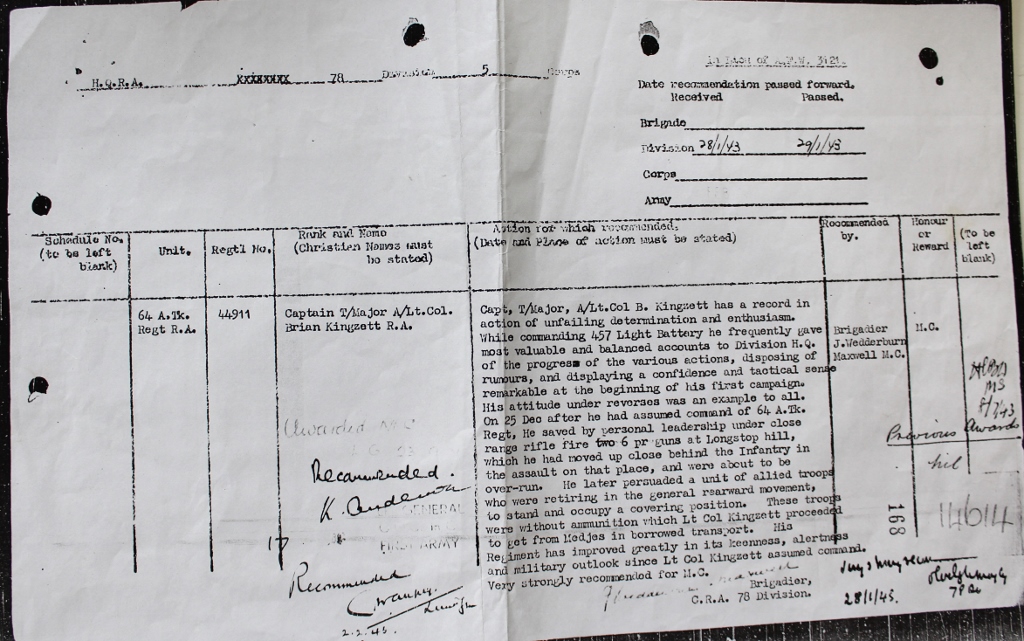 In lieu of A.F.W. 3121.
H.Q.R.A. XXXXXXXX 78 Division 5 Corps
Date recommendation passed forward.
Received Passed.
Brigade
Division 28/1/43 29/1/43
Corps
Army
Schedule No. (to be left blank)
Unit.
Regtl No.
Rank and Name (Christian Names must be stated)
Action for which recommended. (Date and Place of action must be stated)
Recommended by.
Honour or Reward
(To be left blank)
64 A.Tk. Regt R.A.
44911
Captain T/Major A/Lt.Col.
Brian Kingzett R.A.
Capt, T/Major, A/Lt.Col B. Kingzett has a record in
action of unfailing determination and enthusiasm.
While commanding 457 Light Battery he frequently gave
most valuable and balanced accounts to Division H.Q.
of the progress of the various actions, disposing of
rumours, and displaying a confidence and tactical sense
remarkable at the beginning of his first campaign.
His attitude under reverses was an example to all.
On 25 Dec after he had assumed command of 64 A.Tk.
Regt, He saved by personal leadership under close
range rifle fire two 6 pr guns at Longstop hill,
which he had moved up close behind the Infantry in
the assault on that place, and were about to be
over-run. He later persuaded a unit of allied troops
who were retiring in the general rearward movement,
to stand and occupy a covering position. These troops
were without ammunition which Lt Col Kingzett proceeded
to get from Medjes in borrowed transport. His
Regiment has improved greatly in its keenness, alertness
and military outlook since Lt Col Kingzett assumed command.
Very strongly recommended for M.C.
Brigadier,
C.R.A. 78 Division.
Brigadier
J.Wedderburn
Maxwell M.C.
M.C.
Previous Awards
nil
168
14614
Awarded M.C.
Recommended.
K. Anderson
GENERAL
FIRST ARMY
17
Recommended
2.2.43.
28/1/43.